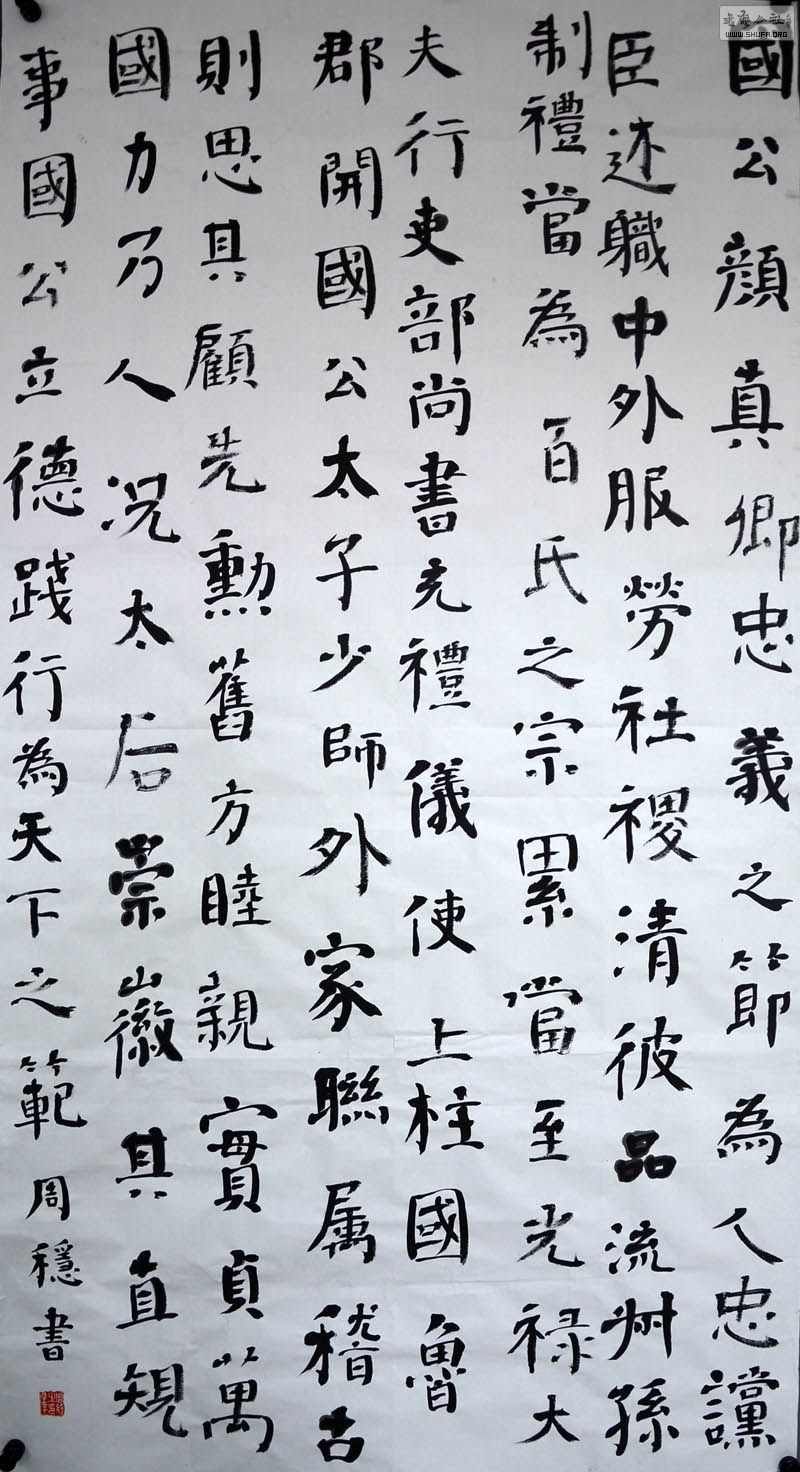 國公顏真卿忠義之節為人忠讜
臣述職中外服勞社稷清彼品流州孫
制禮當為百氏之宗累當至光祿大
夫行吏部尚書充禮儀使上柱國魯
郡開國公太子少師外家聯属稽古
則思其顧先勲舊方睦親實貞萬
國力乃人况太后崇徽其直規
事國公立德踐行為天下之範周穩書
書藝公社
WWW.SHUFA.ORG